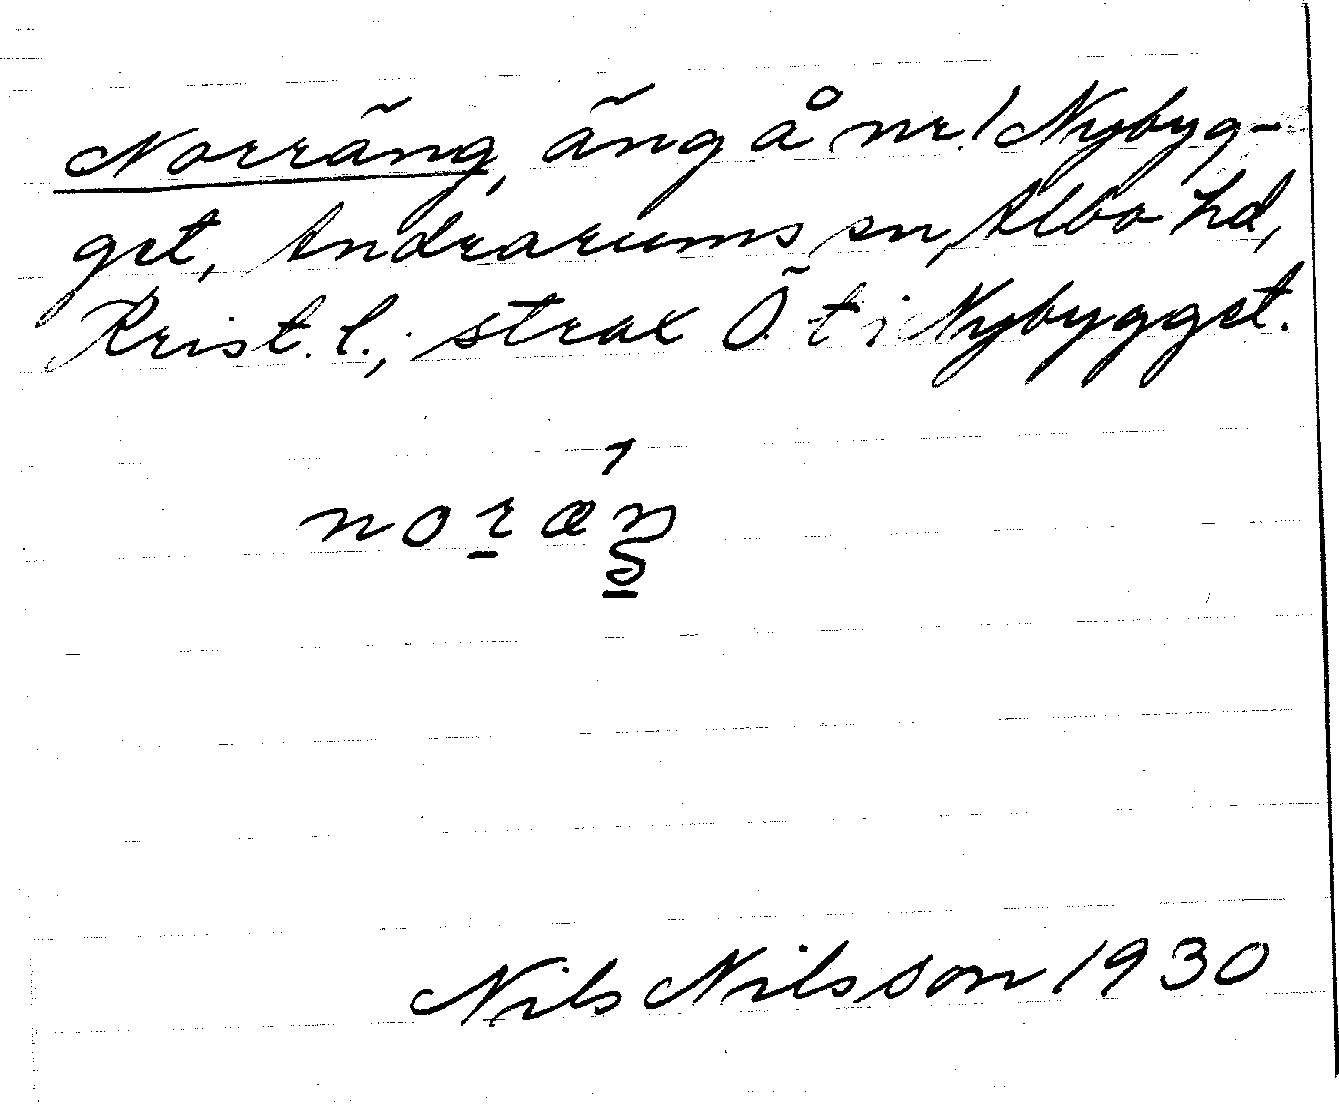 Norräng, äng å nr 1 Nybyg-
get, Andrarums sn, Albo hd,
Krist. l.; strax Ö. t i Nybygget.
noræŋ
Nils Nilsson 1930